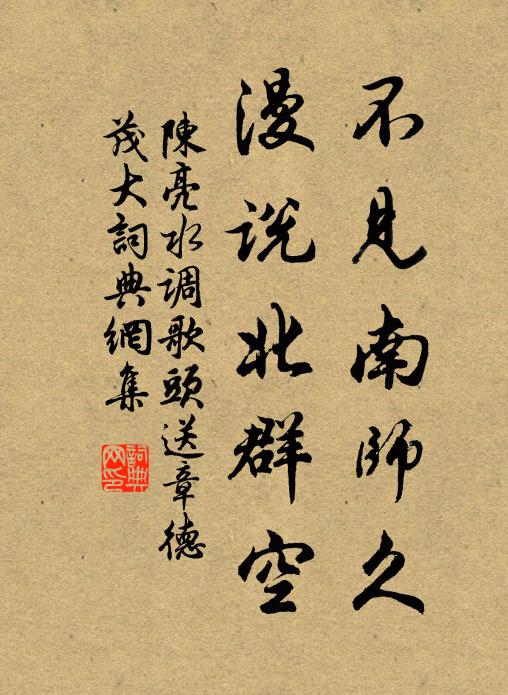 不見南師久
漫説北群空
陳亮水调歌頭送章德
茂大詞典網集
詞典網印